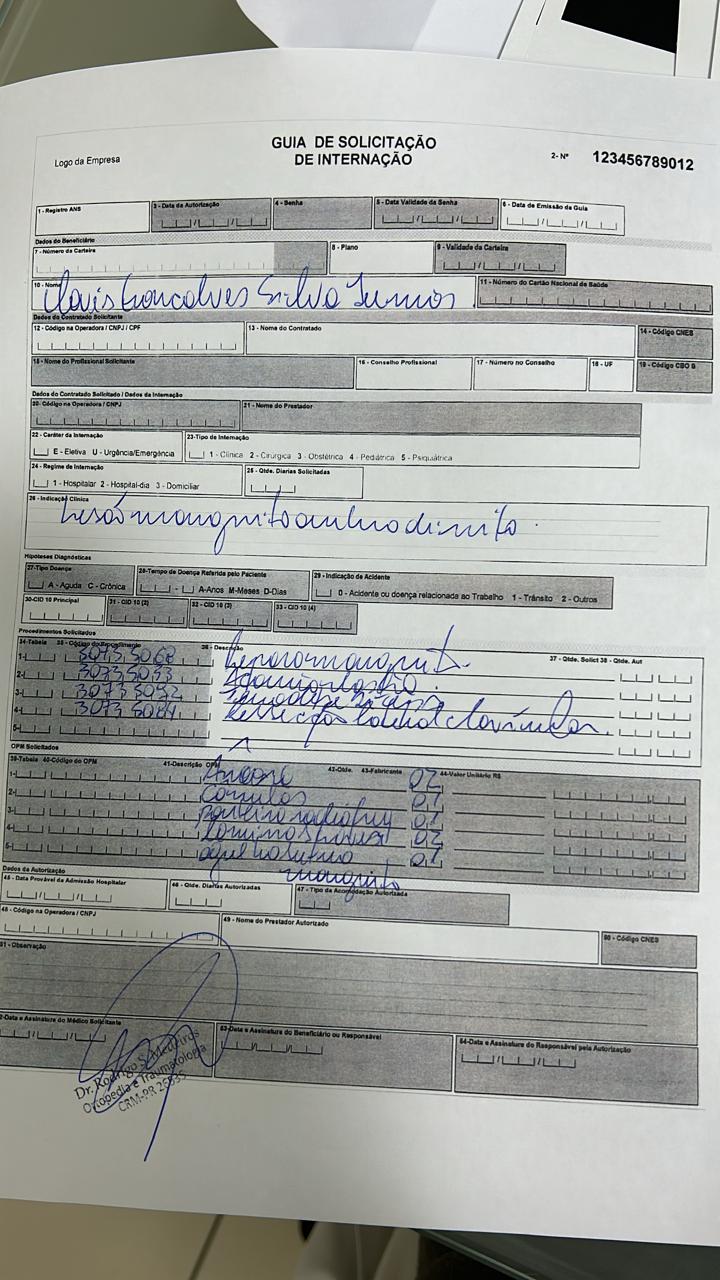 Logo da Empresa
GUIA DE SOLICITAÇÃO
DE INTERNAÇÃO
2- Nº 123456789012
1 - Registro ANS
3 - Data da Autorização
4 - Senha
5 - Data Validade da Senha
6 - Data de Emissão da Guia
Dados do Beneficiário
7 - Número da Carteira
8 - Plano
9 - Validade da Carteira
10 - Nome
Clovis Gonçalves Silva Junior
11 - Número do Cartão Nacional de Saúde
Dados do Contratado Solicitante
12 - Código na Operadora / CNPJ / CPF
13 - Nome do Contratado
14 - Código CNES
15 - Nome do Profissional Solicitante
16 - Conselho Profissional
17 - Número no Conselho
18 - UF
19 - Código CBO S
Dados do Contratado Solicitado / Dados da Internação
20- Código na Operadora / CNPJ
21 - Nome do Prestador
22 - Caráter da Internação
E - Eletiva U - Urgência/Emergência
23-Tipo de Internação
1 - Clínica 2 - Cirúrgica 3 - Obstétrica 4 - Pediátrica 5 - Psiquiátrica
24 - Regime de Internação
1 - Hospitalar 2 - Hospital-dia 3 - Domiciliar
25 - Qtde. Diárias Solicitadas
26 - Indicação Clínica
Lesão manguito ombro direito.
Hipóteses Diagnósticas
27-Tipo Doença
A - Aguda C - Crônica
28-Tempo de Doença Referida pelo Paciente
A-Anos M-Meses D-Dias
29 - Indicação de Acidente
0 - Acidente ou doença relacionada ao Trabalho 1 - Trânsito 2 - Outros
30-CID 10 Principal
31 - CID 10 (2)
32 - CID 10 (3)
33 - CID 10 (4)
Procedimentos Solicitados
34-Tabela 35 - Código do Procedimento 36 - Descrição 37 - Qtde. Solict 38 - Qtde. Aut
1- 30735068 Reparo manguito.
2- 30735033 Acromioplastia.
3- 30735092
4- 30735084 lateral clavícula.
5-
OPM Solicitados
39-Tabela 40-Código do OPM 41-Descrição OPM 42-Qtde. 43-Fabricante 44-Valor Unitário R$
1- Âncora 02
2- Cânulas 01
3- 01
4- 02
5- agulha sutura 01
manguito
Dados da Autorização
45 - Data Provável da Admissão Hospitalar
46 - Qtde. Diárias Autorizadas
47 - Tipo da Acomodação Autorizada
48 - Código na Operadora / CNPJ
49 - Nome do Prestador Autorizado
50 - Código CNES
51 - Observação
52-Data e Assinatura do Médico Solicitante
53-Data e Assinatura do Beneficiário ou Responsável
54-Data e Assinatura do Responsável pela Autorização
Dr. Rodrigo S. Medeiros
Ortopedia e Traumatologia
CRM-PR